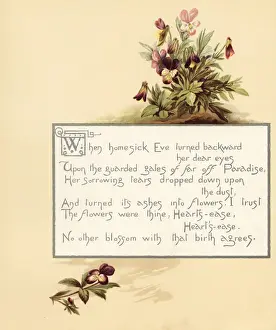 When homesick Eve turned backward
her dear eyes
Upon the guarded gates of far off Paradise,
Her sorrowing tears dropped down upon
the dust,
And turned its ashes into flowers. I trust
The flowers were thine, Heart's-ease,
Heart's-ease.
No other blossom with that birth agrees.